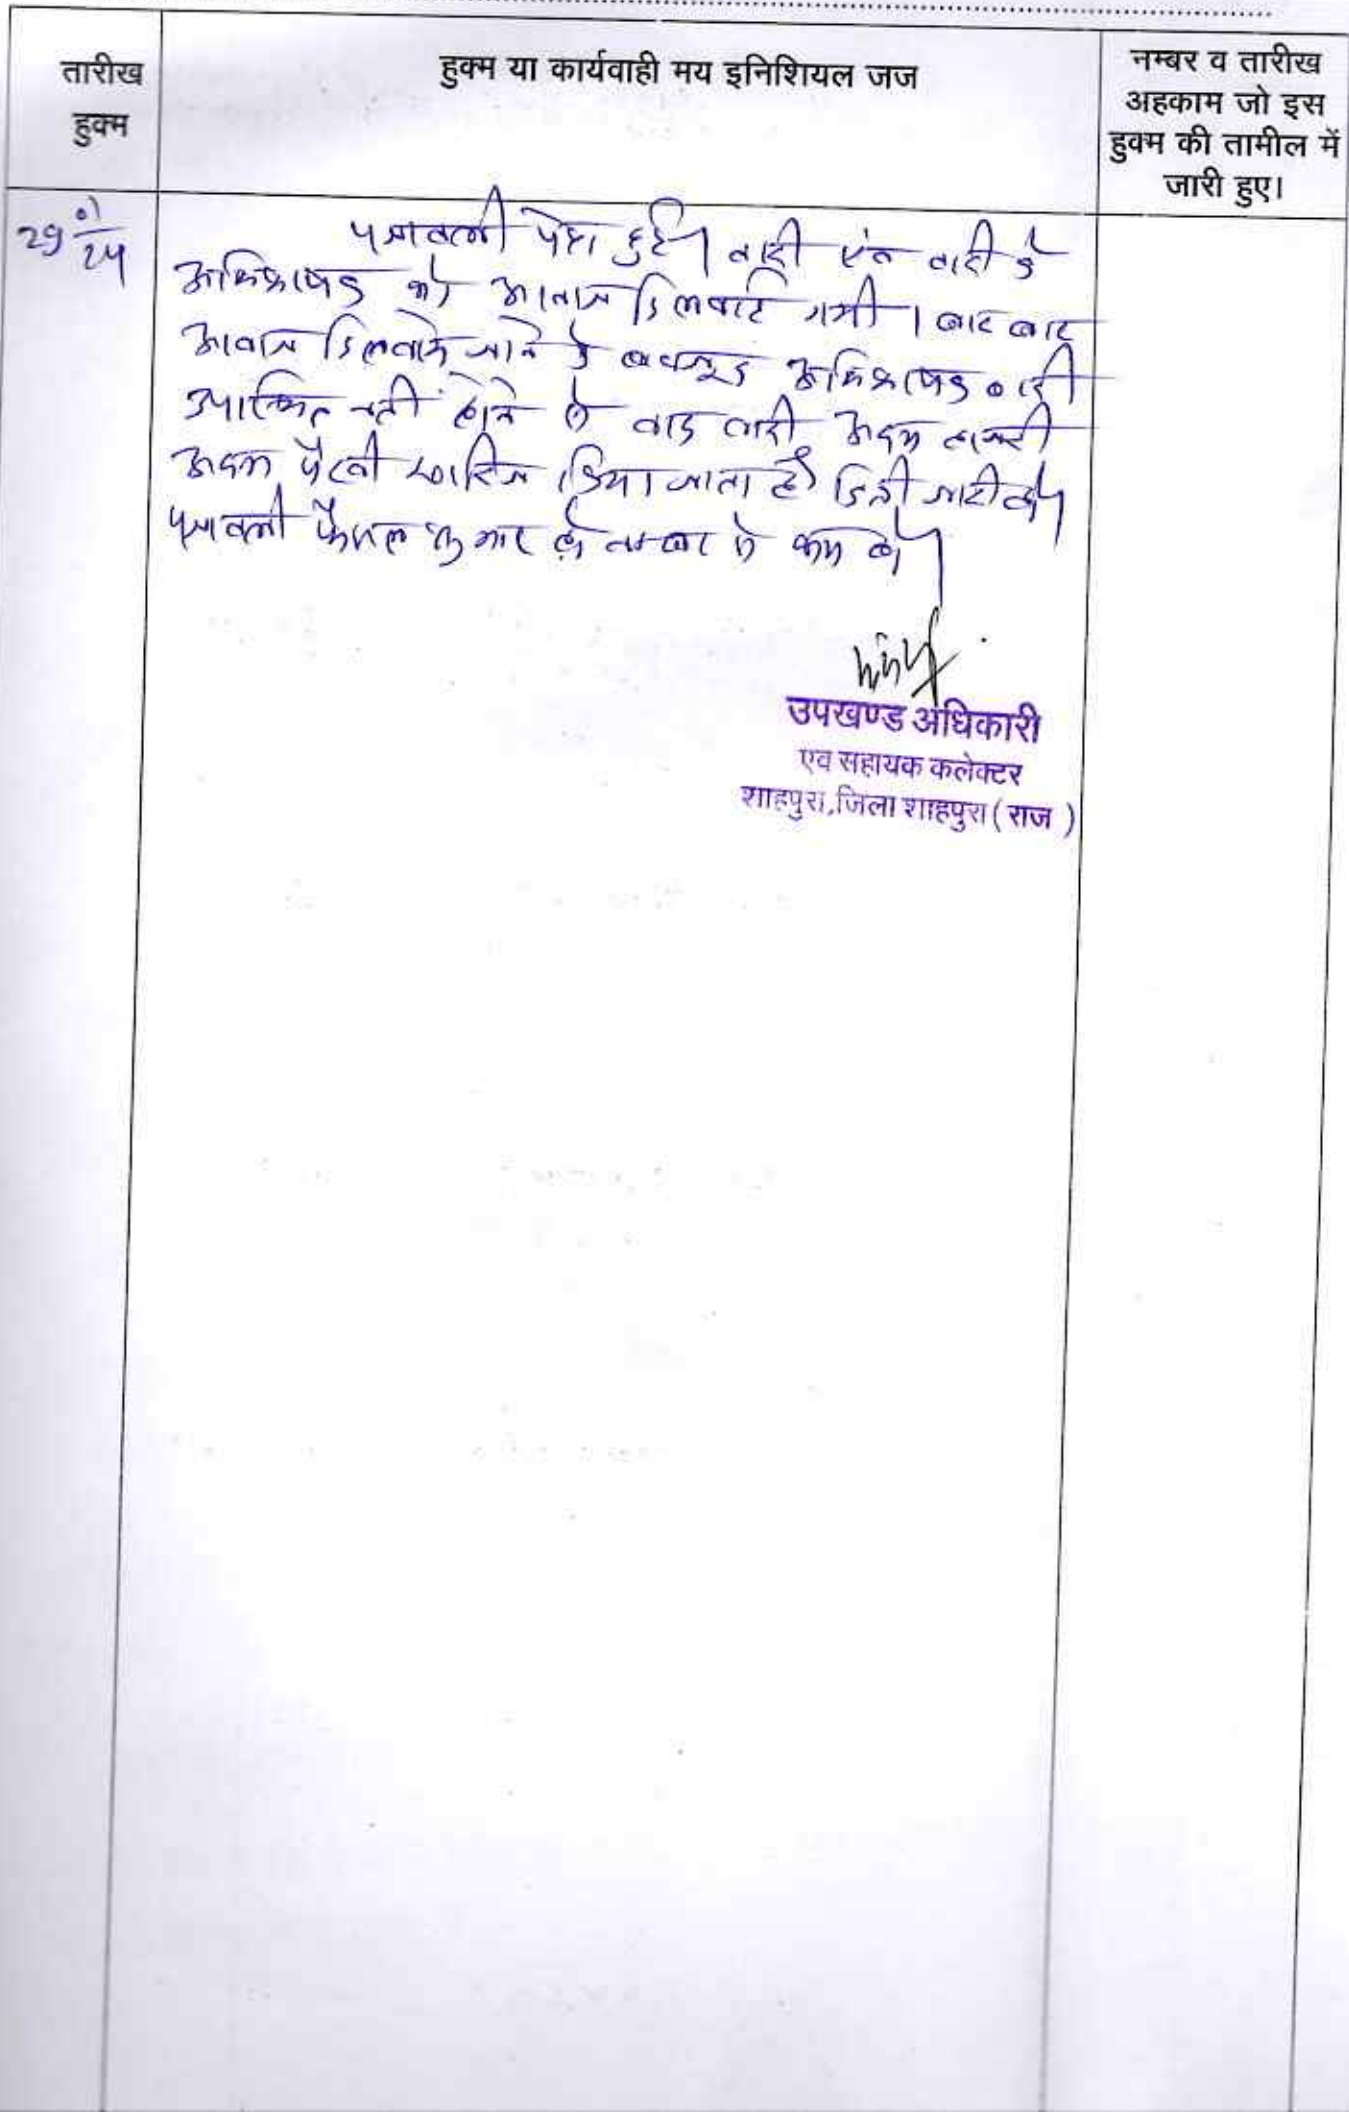 तारीख
हुक्म
हुक्म या कार्यवाही मय इनिशियल जज
नम्बर व तारीख
अहकाम जो इस
हुक्म की तामील में
जारी हुए।
29 01/24
पत्रावली पेश हुई। वादी एंव वादी के
अभिभाषक को आवाज दिलवाई गयी। बार बार
आवाज दिलवाये जाने के बावजूद अभिभाषक वादी
उपस्थित नही होने से वाद वादी अदम हाजरी
अदम पैरवी खारिज किया जाता है। डिक्री जारी हो।
पत्रावली फैसल शुमार हो नम्बर से कम हो।
उपखण्ड अधिकारी
एव सहायक कलेक्टर
शाहपुरा, जिला शाहपुरा ( राज )